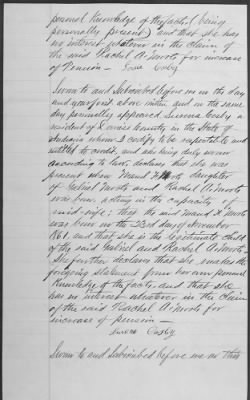 personal knowledge of the facts (being
personally present) and that she has
no interest whatever in the claim of
the said Rachel A. Mroto for increase
of Pension — Cosby
Sworn to and Subscribed before me on the day
and year first above written and on the same
day personally appeared Surena Cosby a
resident of County, in the State of
Indiana whom I certify to be respectable and
entitled to credit, and who being duly sworn
according to law, declares that she was
present when Maud F. Mroto daughter
of Gabriel Mroto and Rachel A. Mroto
was born, acting in the capacity of
midwife; that the said Maud F. Mroto
was born on the 23rd day of November
and that she is the legitimate child
of the said Gabriel and Rachel A. Mroto
She further declares that she makes the
foregoing statement from her own personal
knowledge of the facts, and that she
has no interest whatever in the claim
of the said Rachel A. Mroto for
increase of pension —
Surena Cosby
Sworn to and Subscribed before me on this